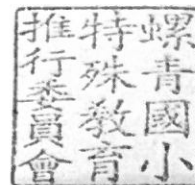 螺青國小
特殊教育
推行委員會